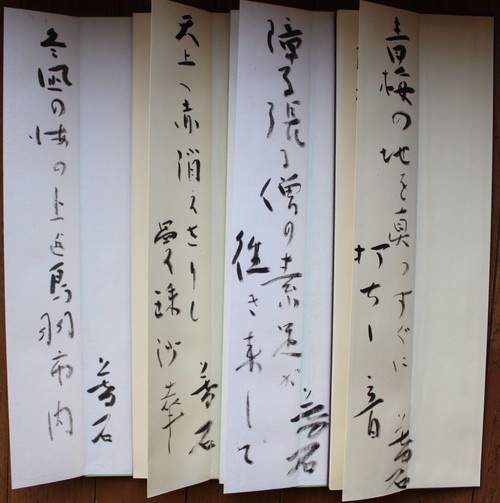 青梅の地を真つすぐに
打ちし音
障子張る僧の素足が
往き来して
天上へ赤消えさりし
曼珠沙華
冬凪の海の上迄鳥羽市内